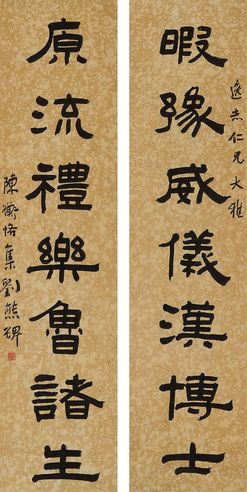 仁兄大雅
暇豫威儀漢博士
原流禮樂魯諸生
陳衡恪集劉熊碑